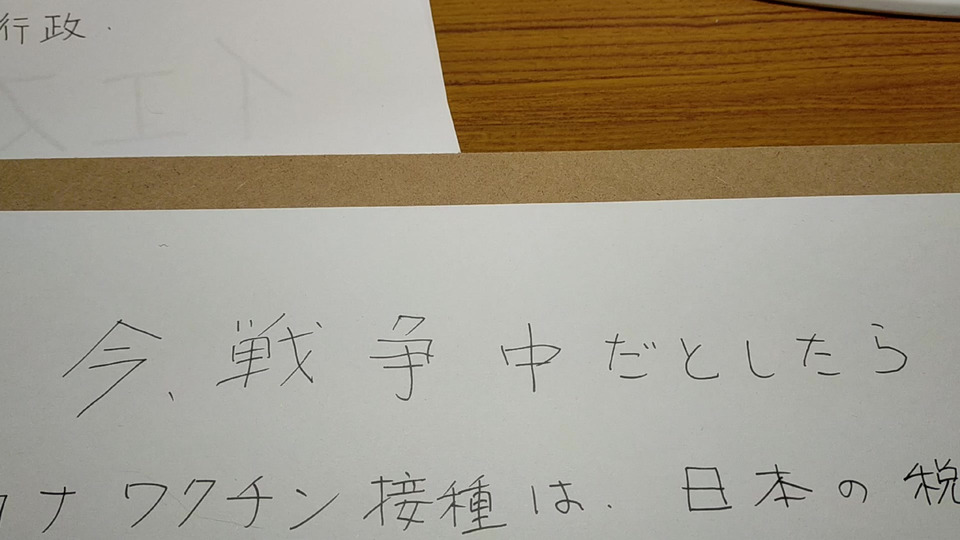 行政.
今、戦争中だとしたら
ナワクチン接種は. 日本の税